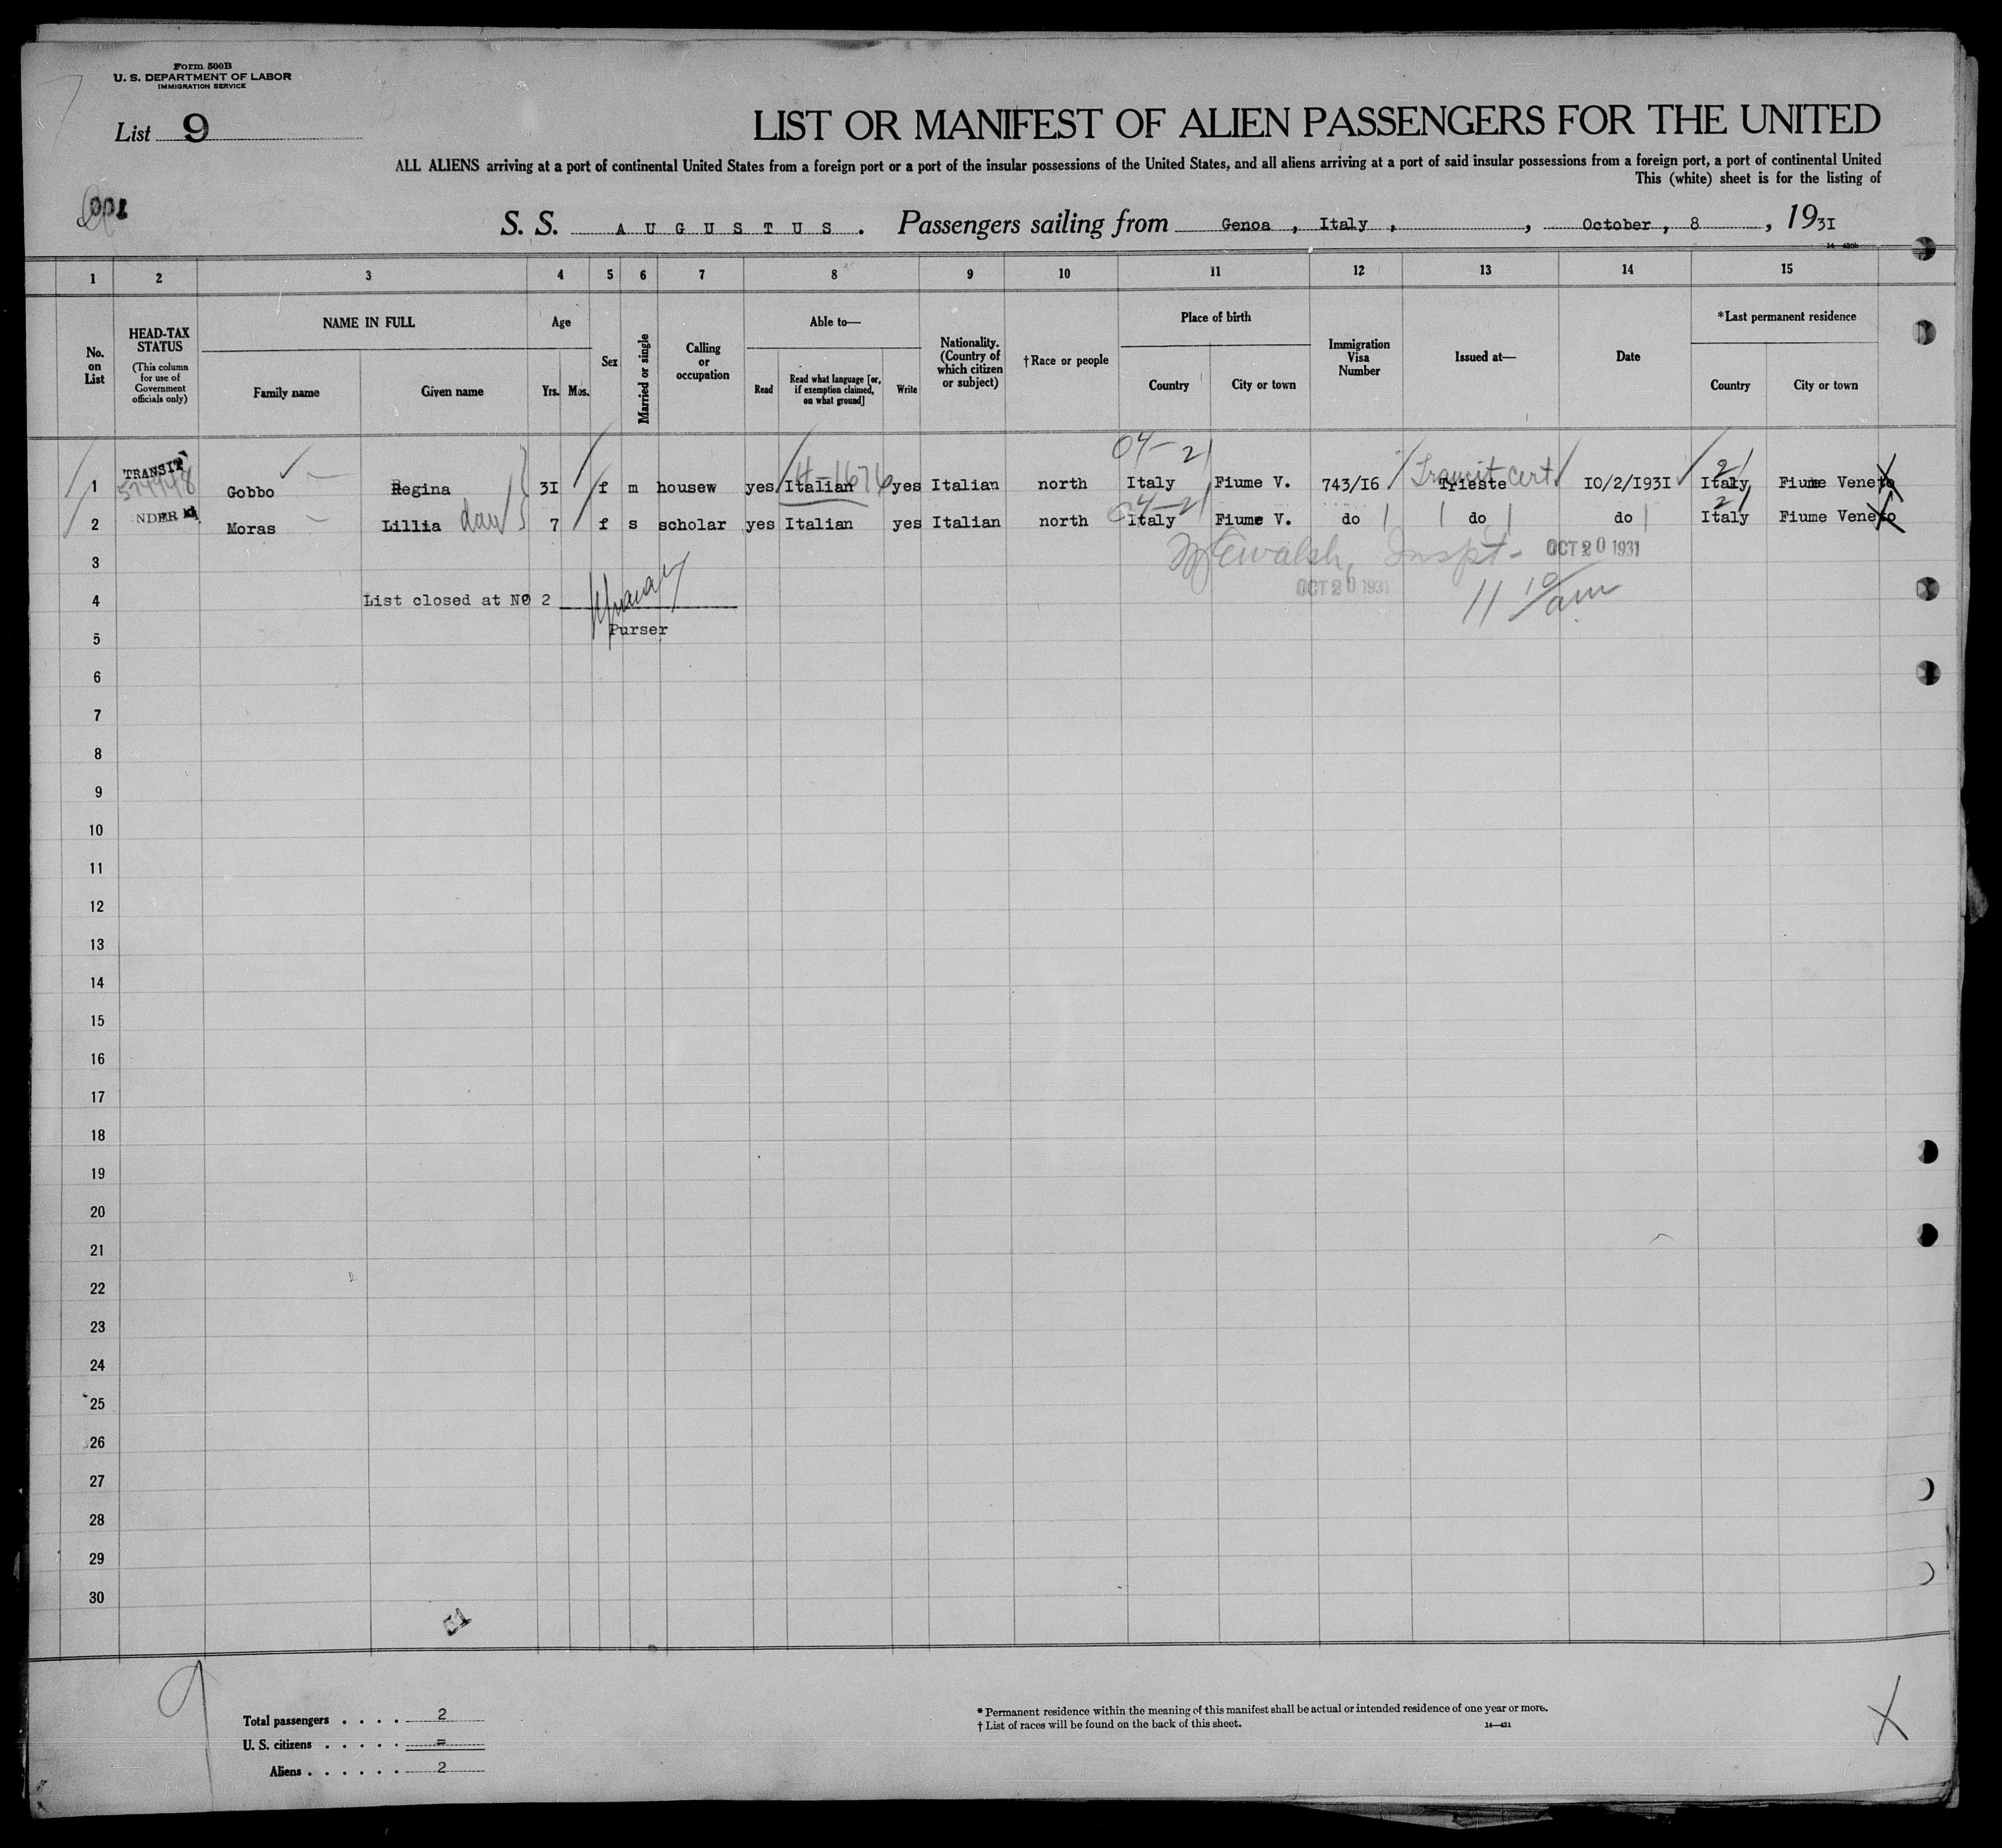 Form 500B
U. S. DEPARTMENT OF LABOR
IMMIGRATION SERVICE
List 9
LIST OR MANIFEST OF ALIEN PASSENGERS FOR THE UNITED
ALL ALIENS arriving at a port of continental United States from a foreign port or a port of the insular possessions of the United States, and all aliens arriving at a port of said insular possessions from a foreign port, a port of continental United
This (white) sheet is for the listing of
S. S. A U G U S T U S . Passengers sailing from Genoa , Italy , , October , 8 , 1931
1 2 3 4 5 6 7 8 9 10 11 12 13 14 15
No. on List
HEAD-TAX STATUS
(This column for use of Government officials only)
NAME IN FULL
Family name
Given name
Age
Yrs. Mos.
Sex
Married or single
Calling or occupation
Able to—
Read
Read what language [or, if exemption claimed, on what ground]
Write
Nationality. (Country of which citizen or subject)
†Race or people
Place of birth
Country
City or town
Immigration Visa Number
Issued at—
Date
*Last permanent residence
Country
City or town
04-2
1 TRANSIT Gobbo Regina 31 f m housew yes Italian yes Italian north Italy Fiume V. 743/16 Transit cert. Trieste 10/2/1931 Italy Fiume Veneto
2 Moras Lillia dau 7 f s scholar yes Italian yes Italian north Italy Fiume V. do do do Italy Fiume Veneto
3 Inspt- OCT 20 1931
OCT 20 1931 11 10/am
4 List closed at No 2
Purser
5
6
7
8
9
10
11
12
13
14
15
16
17
18
19
20
21
22
23
24
25
26
27
28
29
30
9
Total passengers . . . . 2
U. S. citizens . . . . . =
Aliens . . . . . . 2
* Permanent residence within the meaning of this manifest shall be actual or intended residence of one year or more.
† List of races will be found on the back of this sheet.
14—431
X